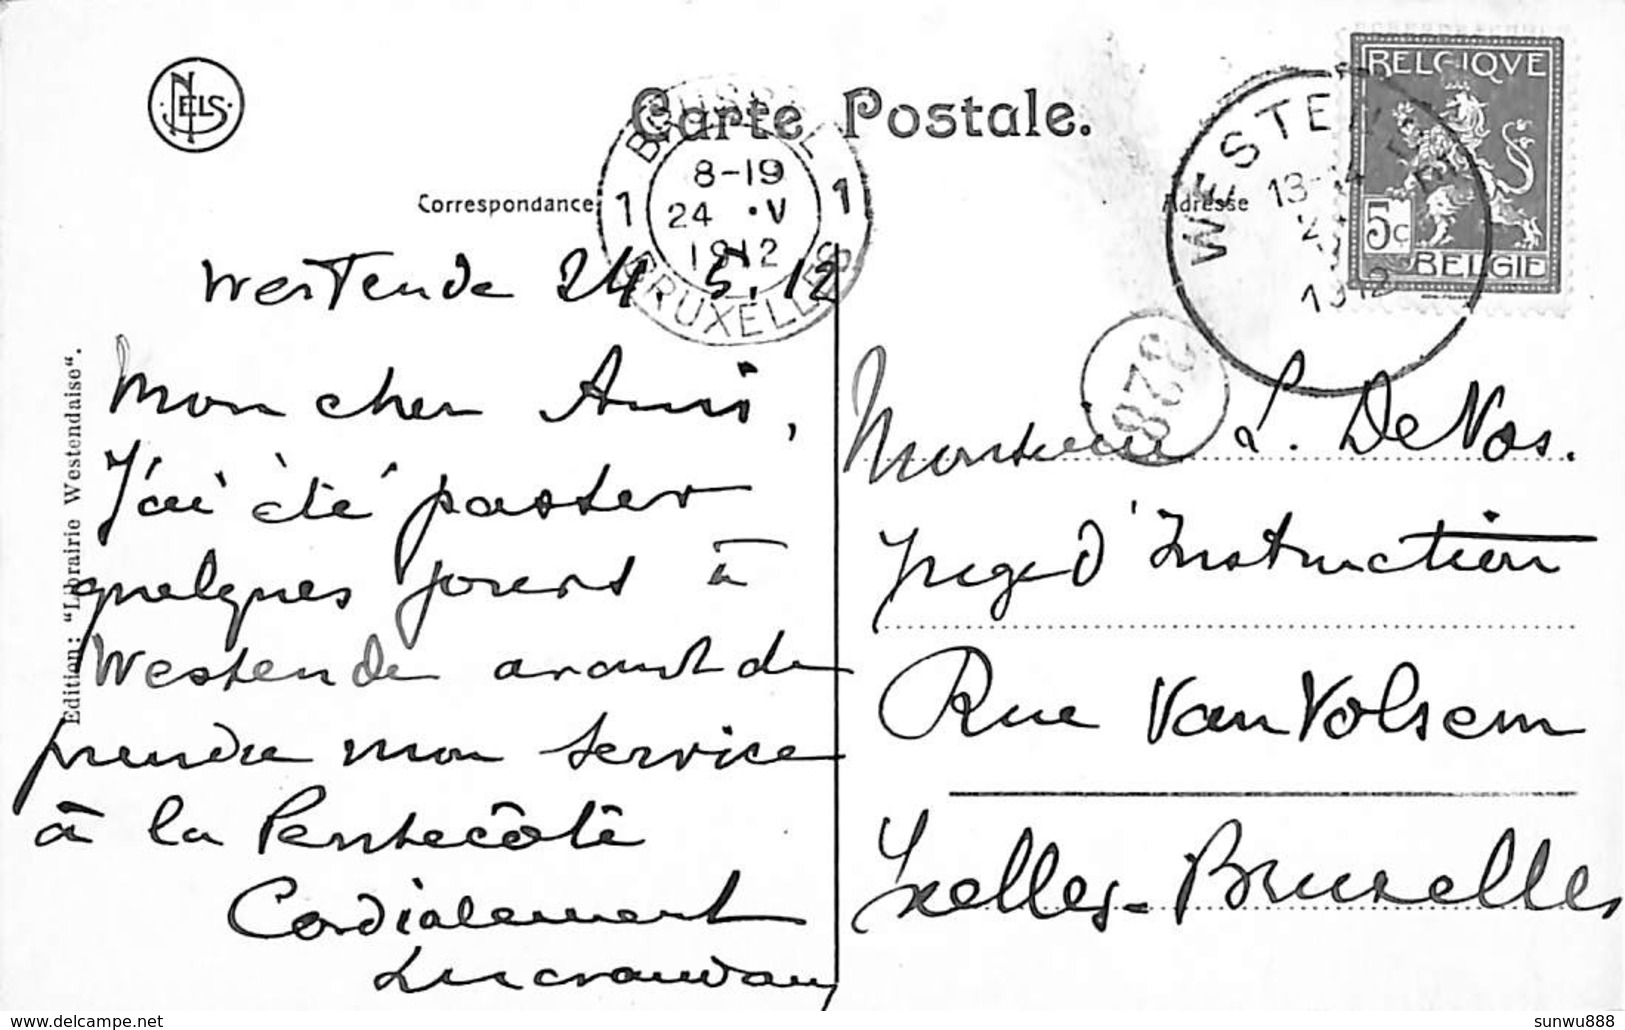 NELS
Carte Postale.
BELGIQVE
5c
BELGIE
WESTENDE
13-14
1912
BRUSSEL
8-19
1 24 ·V 1
1912
BRUXELLES
328
Correspondance
Adresse
Edition: "Librairie Westendaise".
Westende 24.5.12
Mon cher Ami,
J'ai été passer
quelques jours à
Westende avant de
prendre mon service
à la Pentecôte
Cordialement
Monsieur L. De Vos.
Juge d'Instruction
Rue Van Volsem
Ixelles-Bruxelles
www.delcampe.net
sunwu888